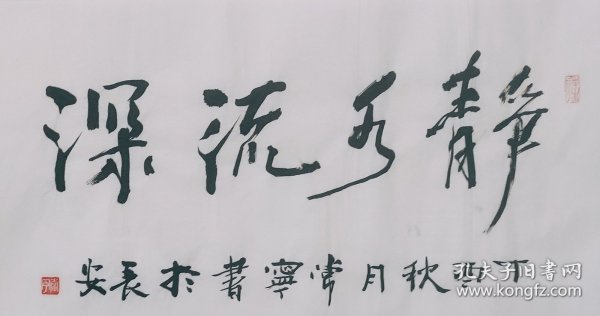 靜水流深
秋月常寧書於長安
孔夫子旧书网
www.kongfz.com